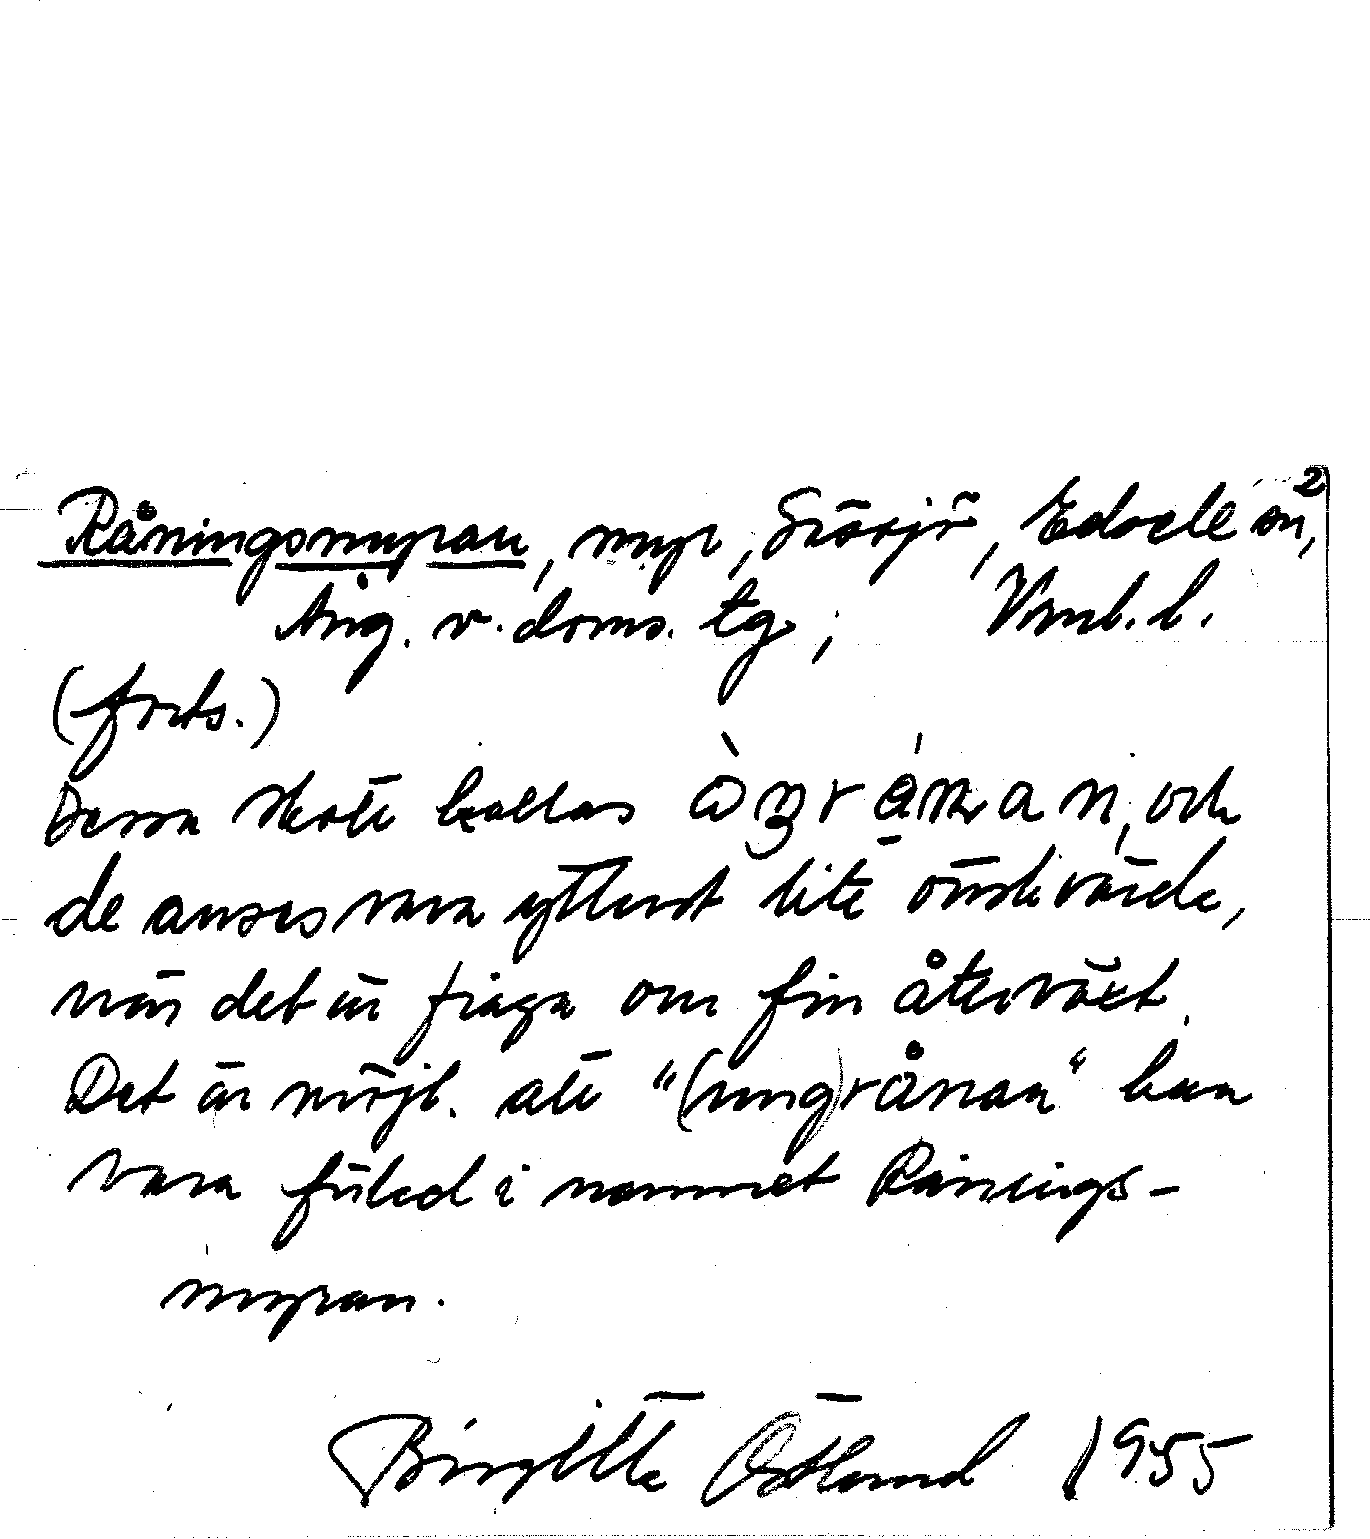 2
Råningsmyran, myr, Svärjö, Edsele sn,
Ång. v. doms. tg; Vml. l.
(forts.)
Dessa skott kallas och
de anses vara ytterst lite önskvärda,
när det är fråga om fin återväxt.
Det är möjl. att "(ung)rånan" kan
vara förled i namnet Rånings-
myran.
Birgitta Östlund 1955